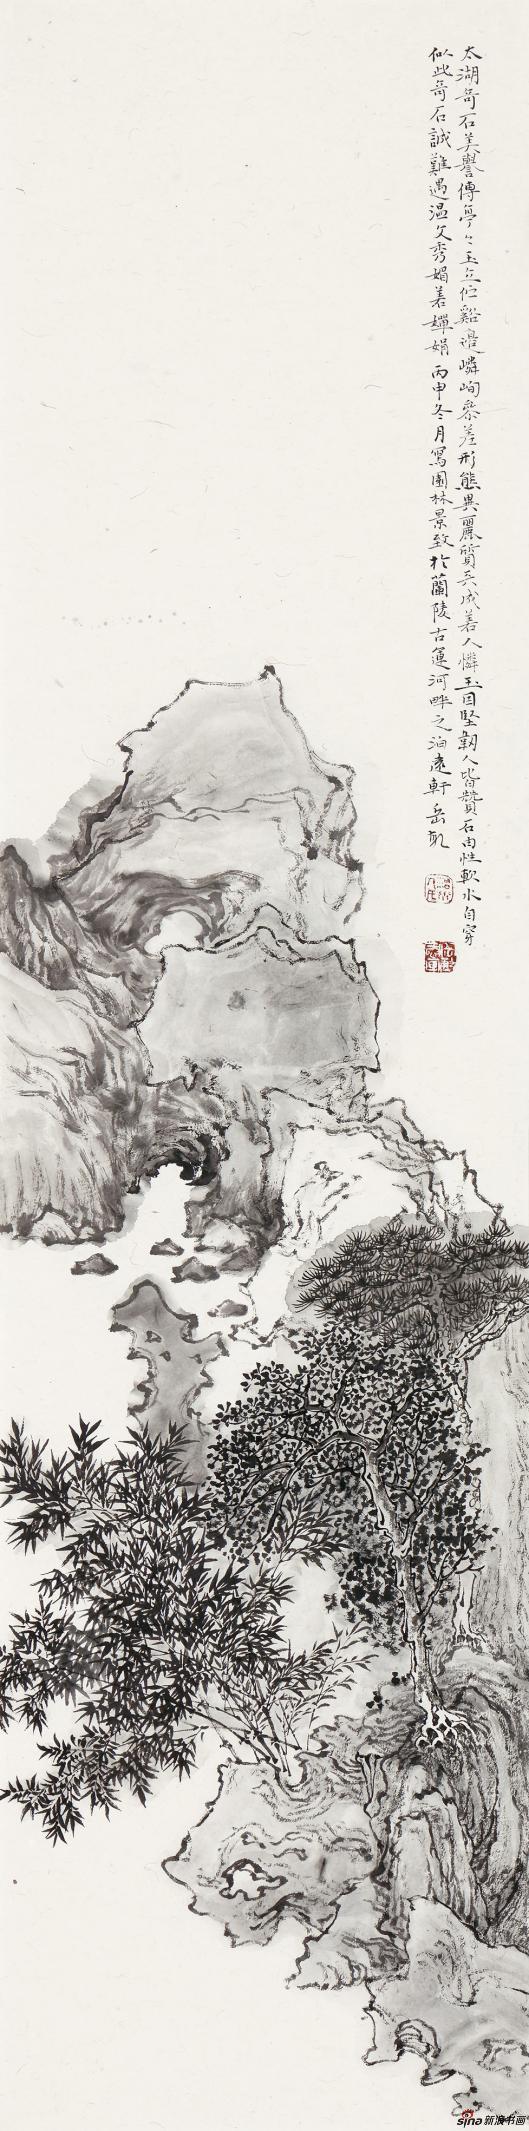 太湖奇石美譽傳亭々玉立伫谿邊嶙峋叅差形態異麗質天成羞人憐玉因堅韌人皆贊石由性軟水自穿
似此奇石誠難遇温文秀媚若嬋娟 丙申冬月寫園林景致於蘭陵古運河畔之泊遠軒 岳
sina 新浪书画